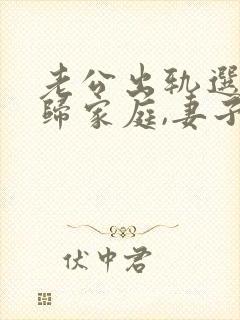 老公出轨選
歸家庭,妻子
伏中君